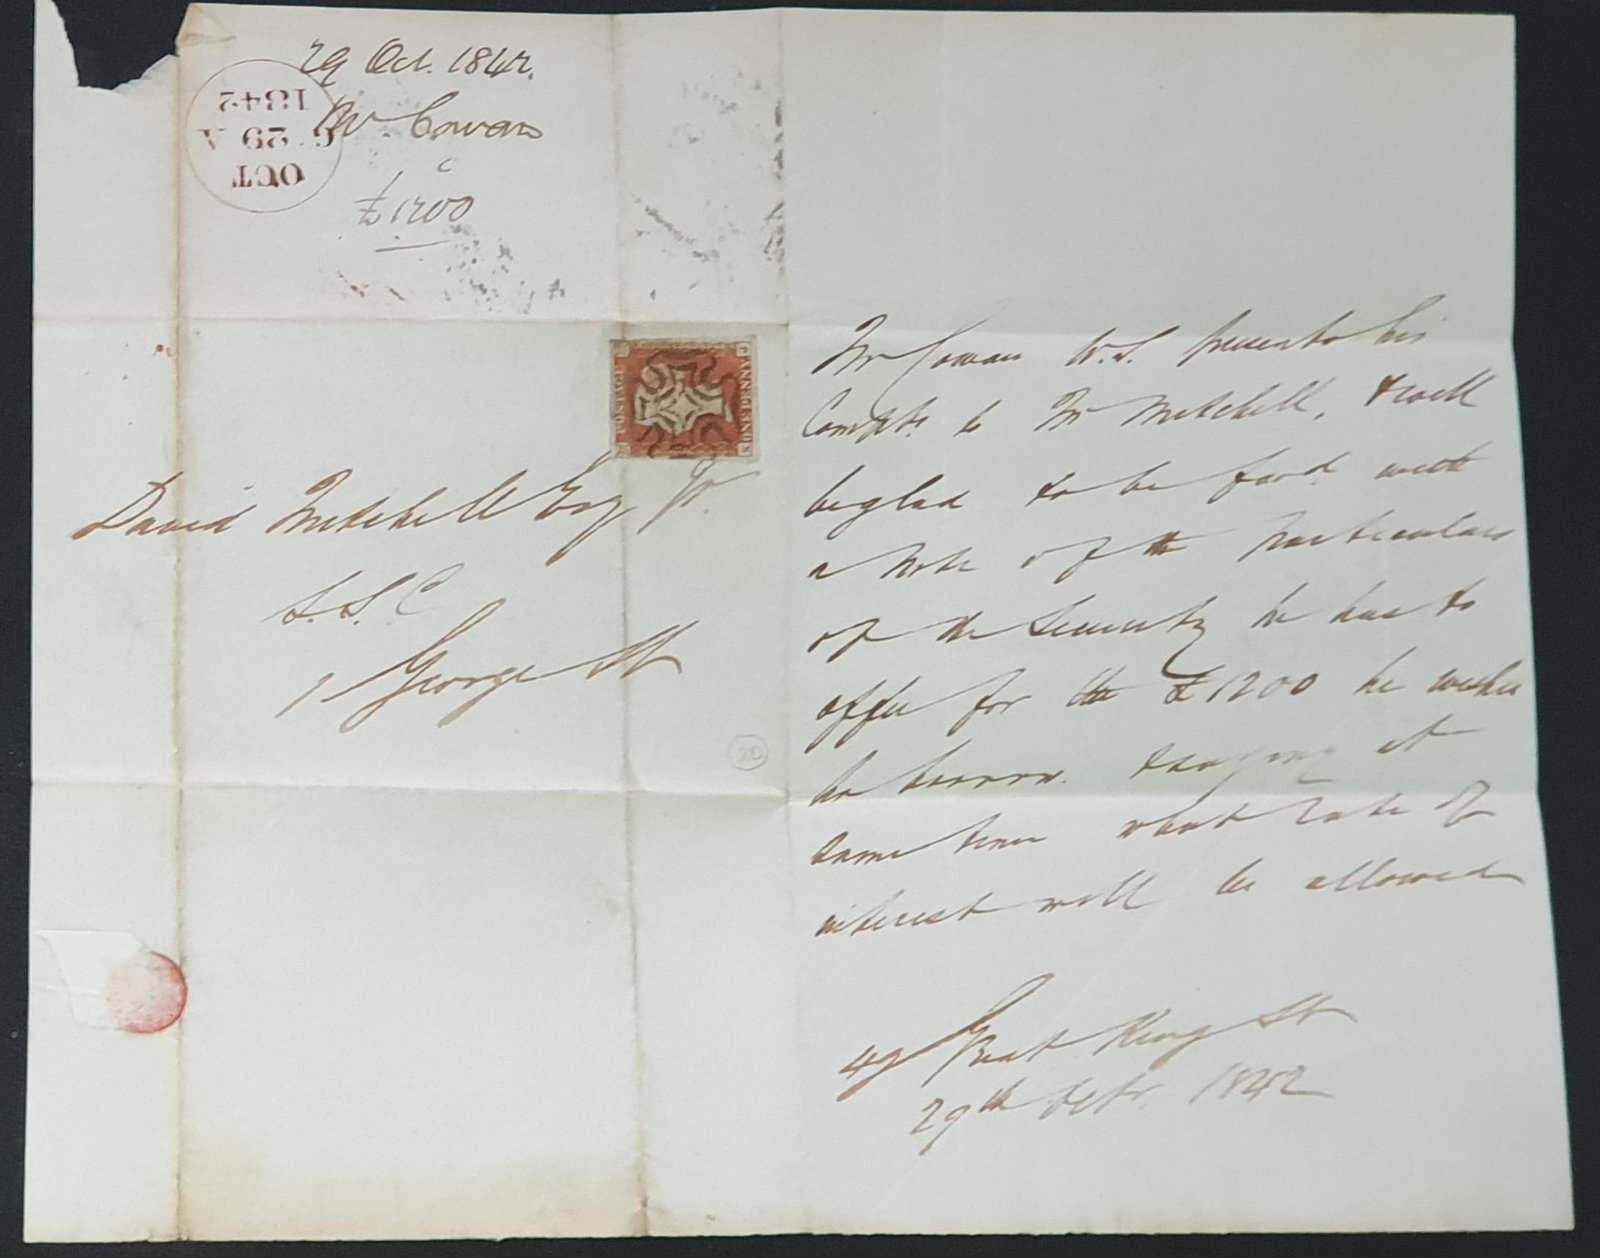 29 Oct. 1842.
Mr Cowan
£1200
OCT
29
1842
POSTAGE
ONE PENNY
David Mitchell Esqr Jr.
S.S.C
1 George St
20
Mr Cowan W.S. presents his
Compts. to Mr Mitchell, & will
be glad to be favd. with
a Note of the particulars
of the Security he has to
offer for the £1200 he wishes
to borrow. & saying at
same time what rate of
interest will be allowed
49 Great King St
29th Octr. 1842